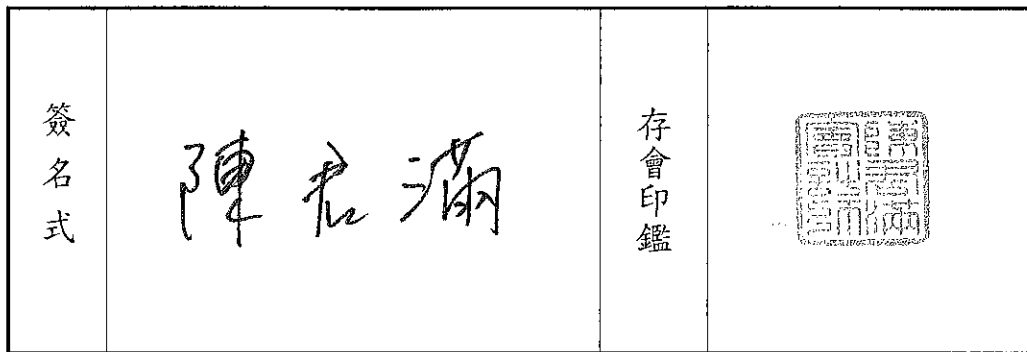 簽名式
陳君滿
存會印鑑